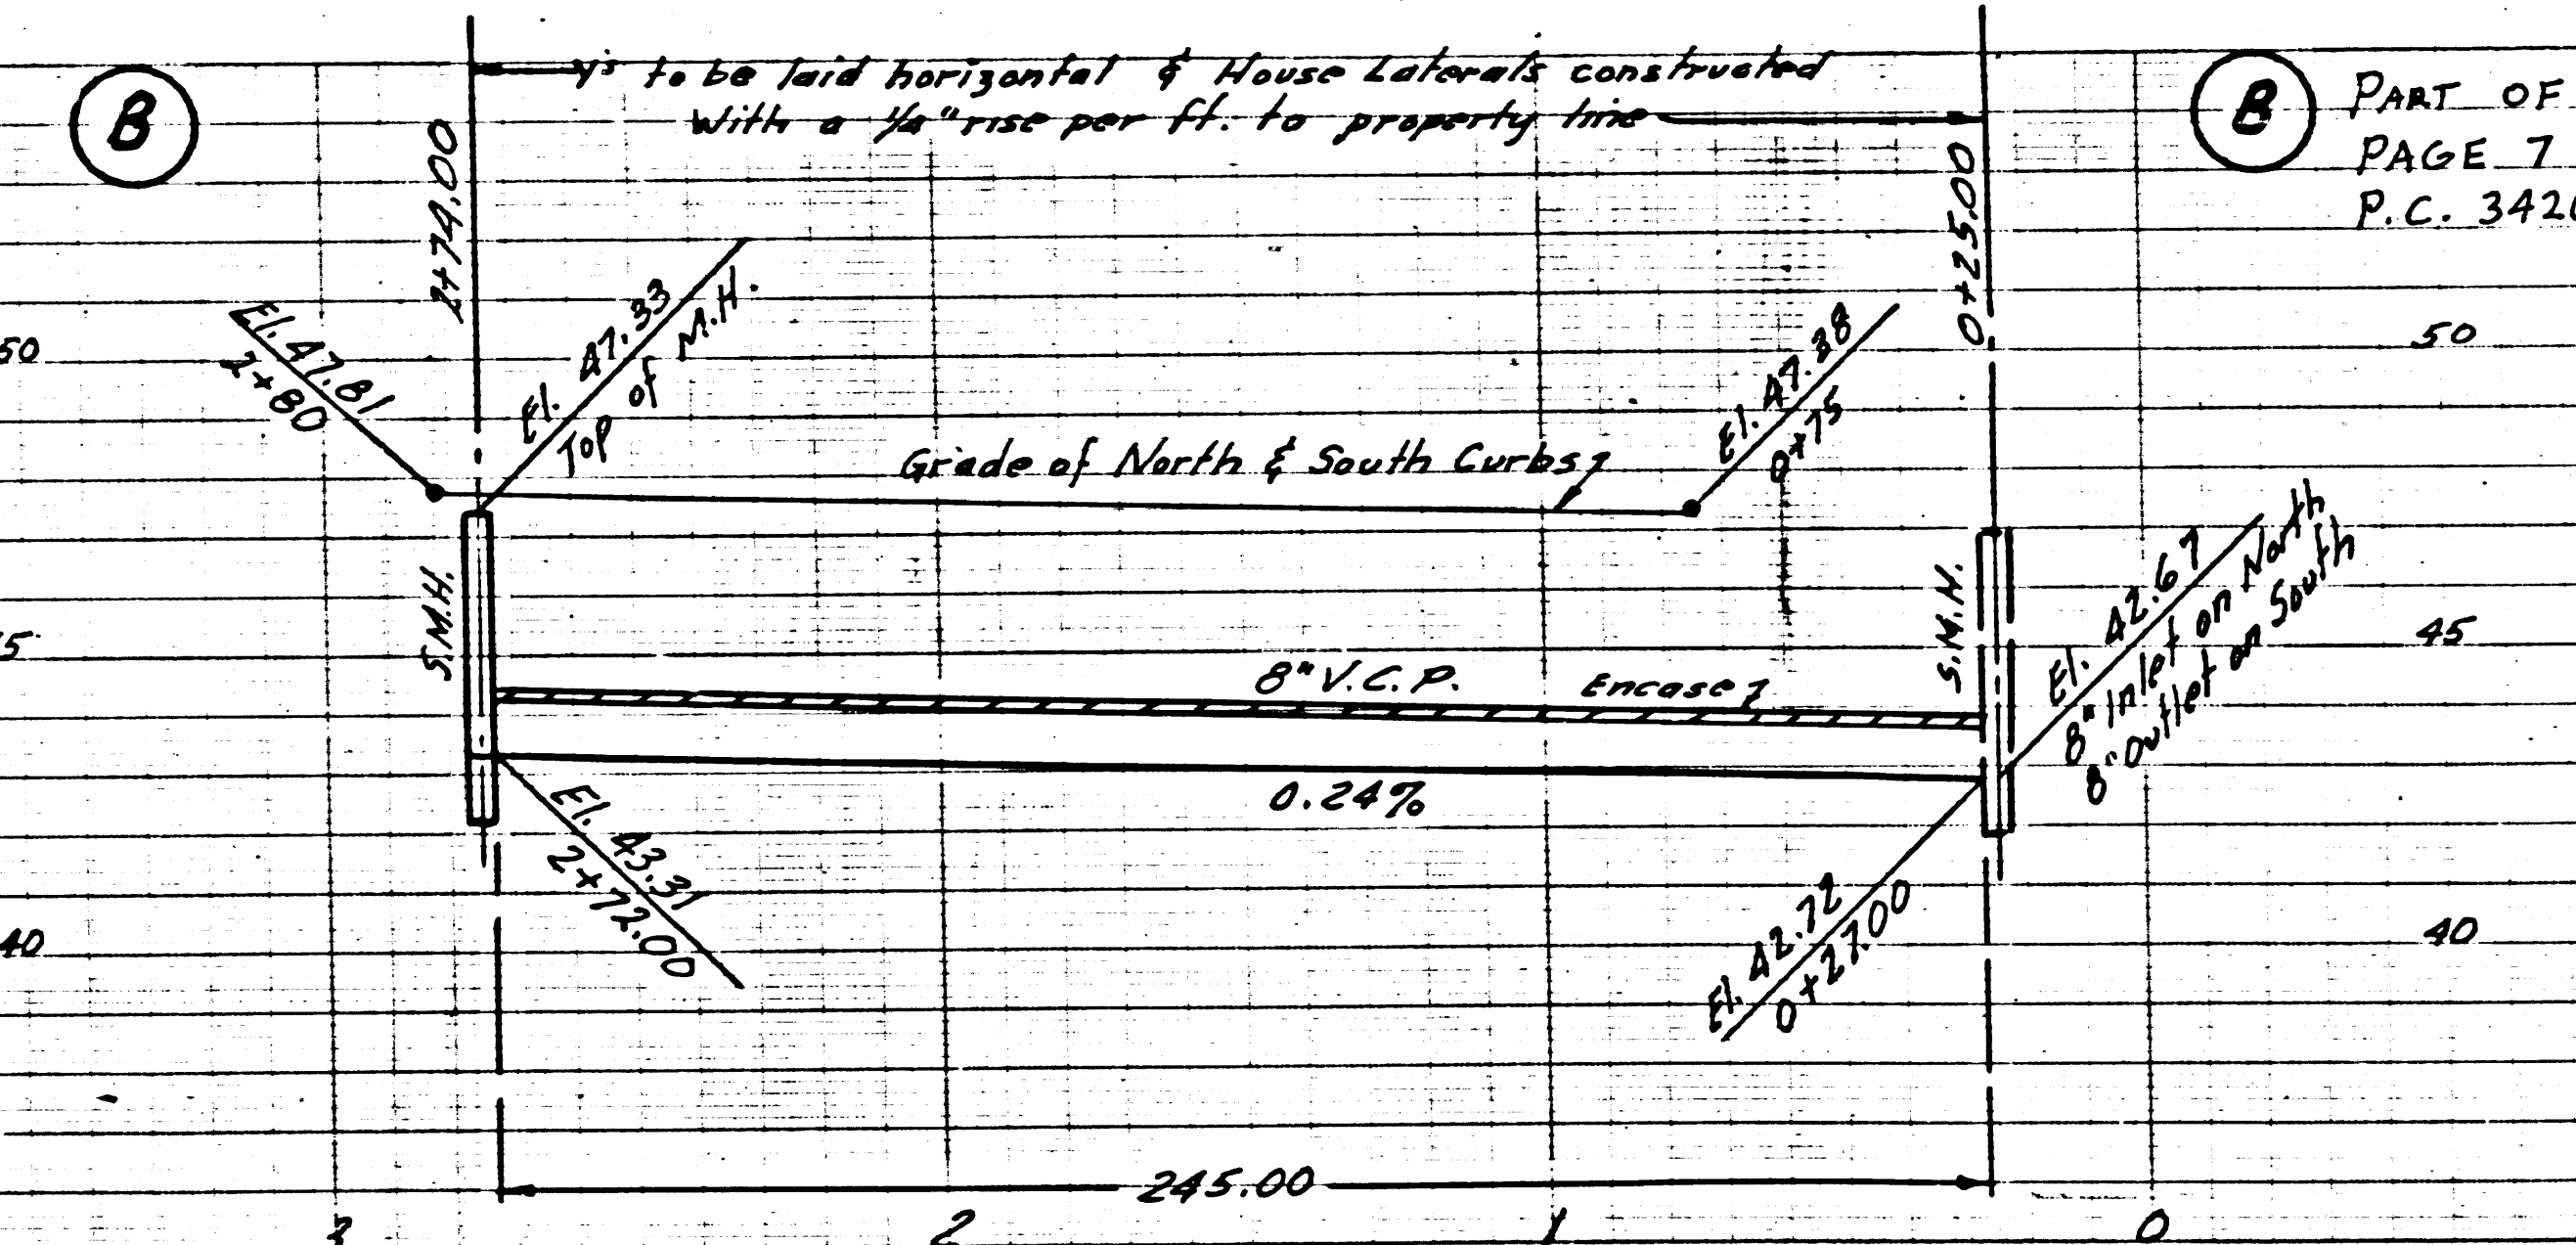 B
Y's to be laid horizontal & House Laterals constructed
With a 1/4" rise per ft. to property line
B
PART OF
PAGE 7
P.C. 342
2+74.00
0+25.00
50
El. 47.81
2+80
El. 47.33
Top of M.H.
El. 47.38
0+75
50
Grade of North & South Curbs
S.M.H.
S.M.H.
El. 42.67
8" Inlet on North
8" Outlet on South
5
45
8" V.C.P.
Encase
0.24%
El. 43.31
2+72.00
El. 42.72
0+27.00
40
40
245.00
3
2
1
0